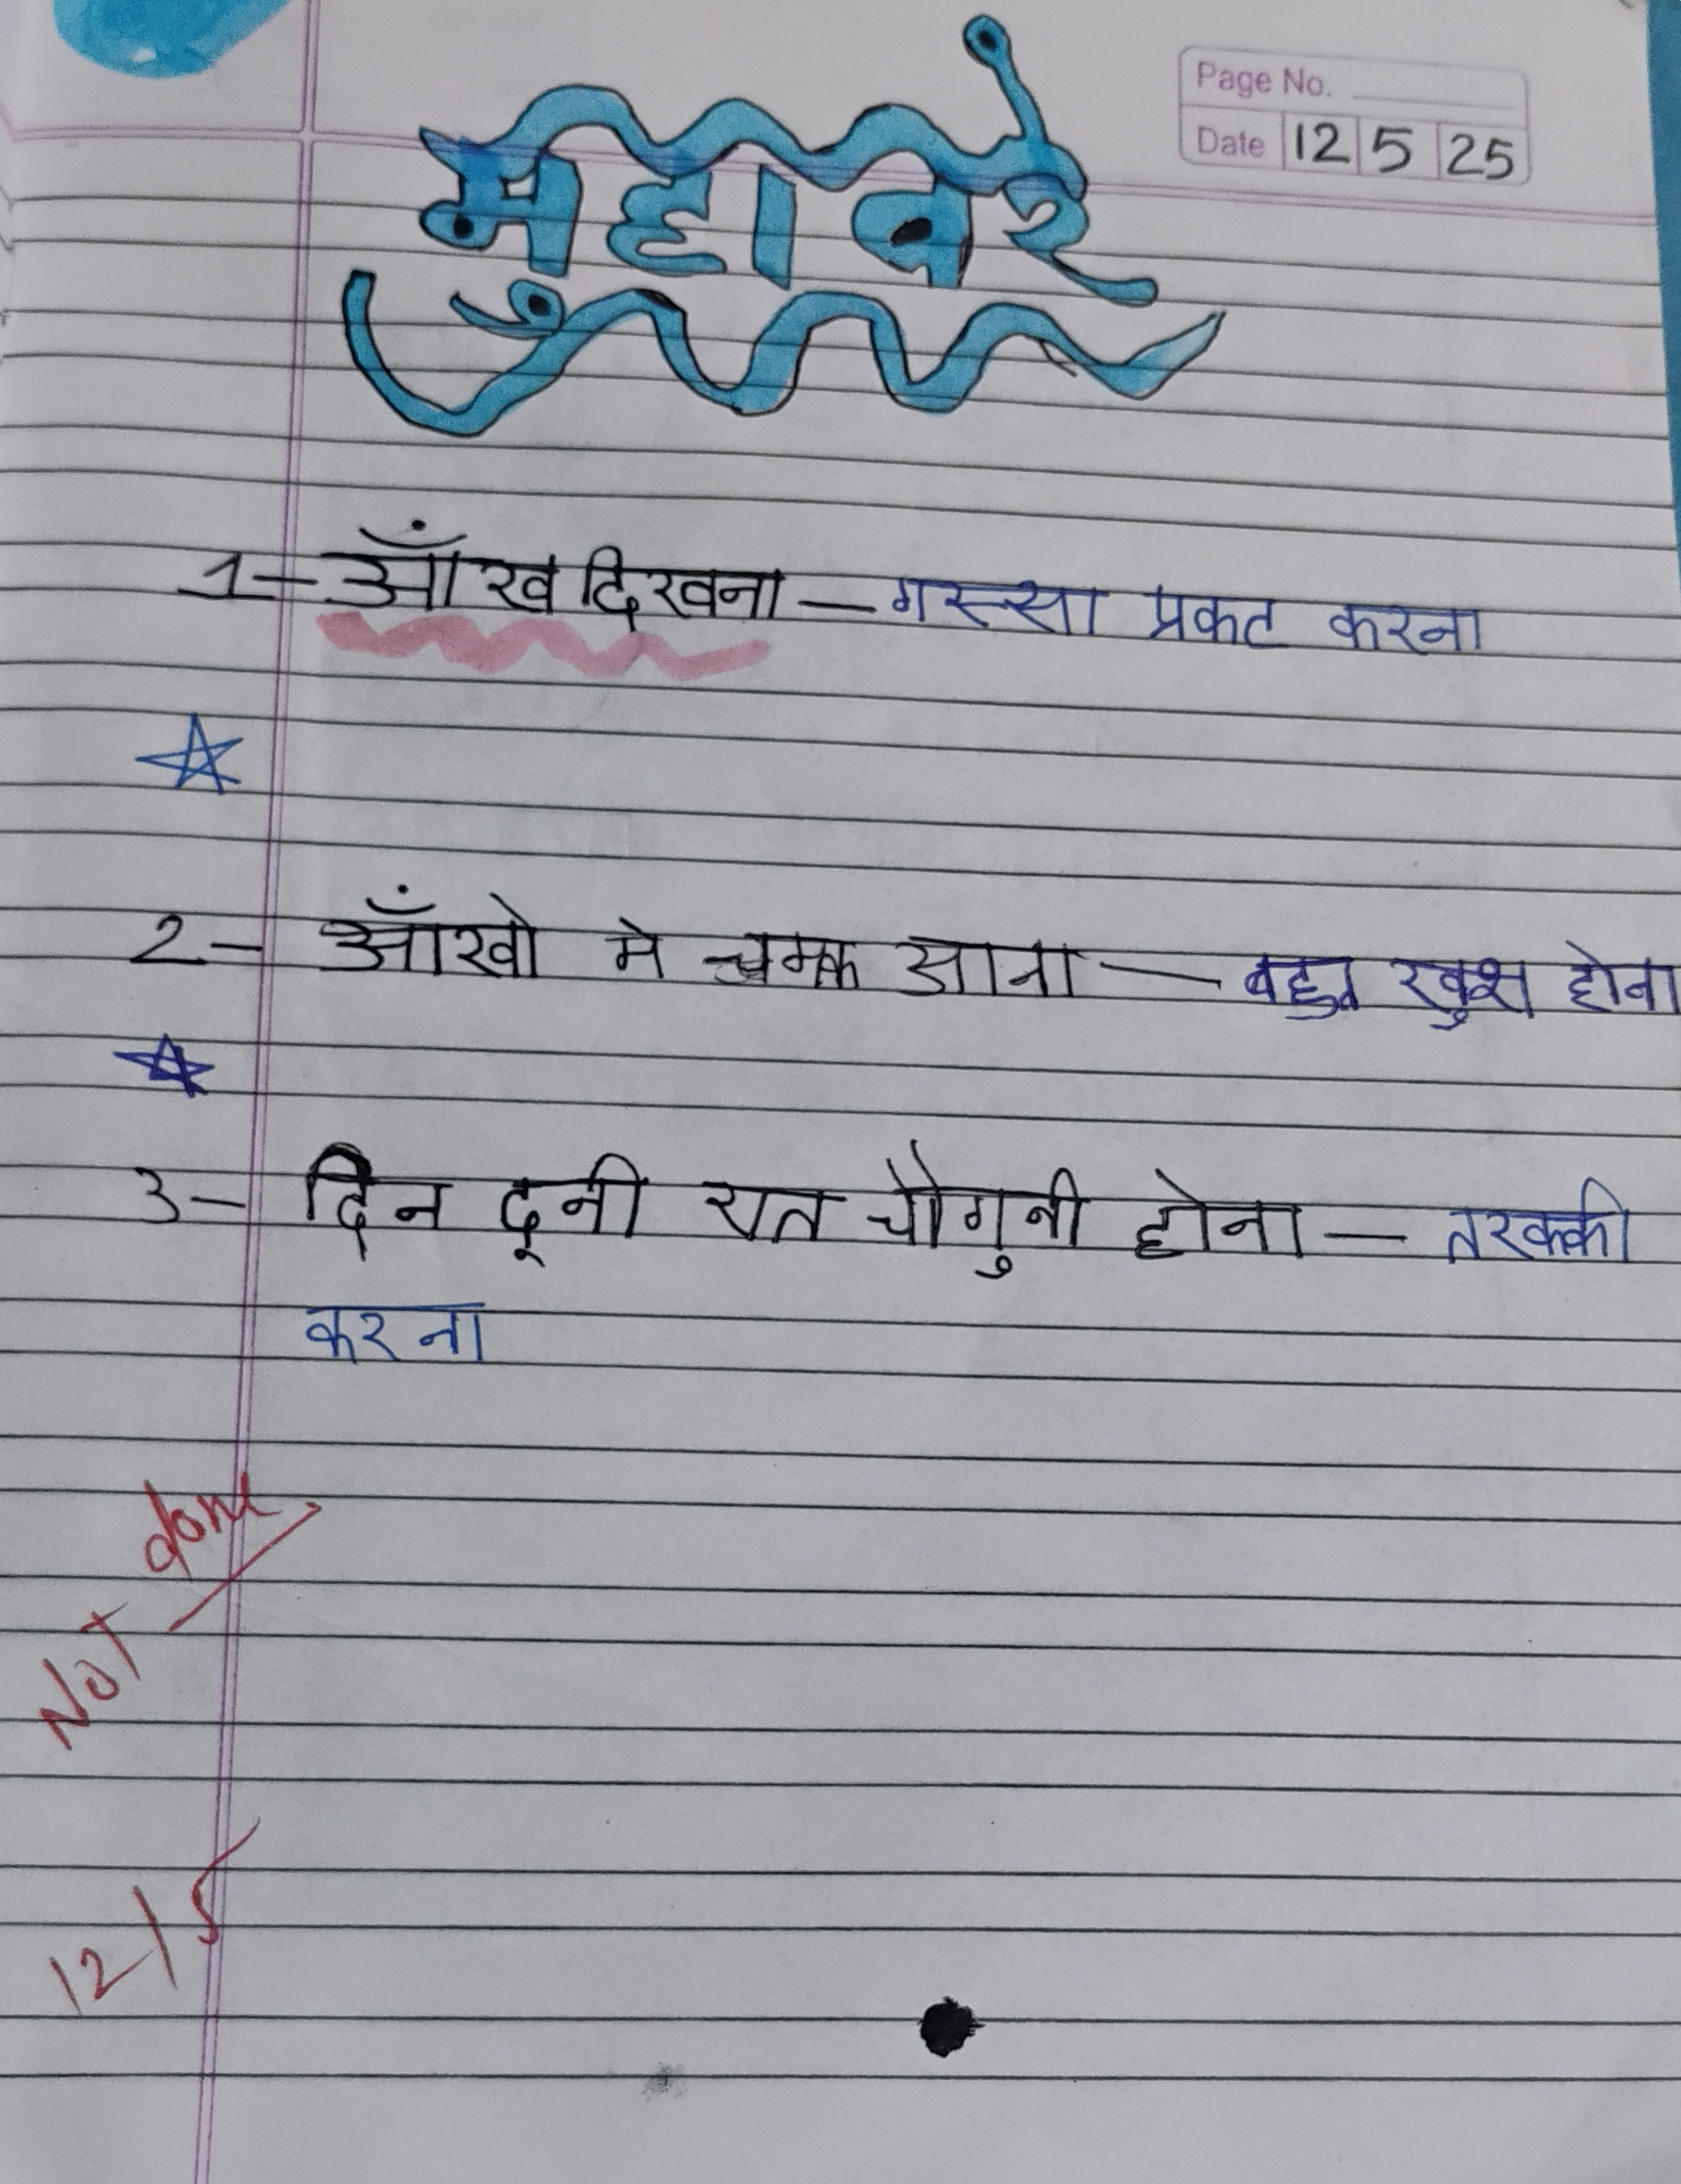 Page No.
Date 12 5 25
मुहावरे
1- आँख दिखना - गस्सा प्रकट करना
2- आँखो मे चमक आना - बहुत खुश होना
3- दिन दूनी रात चौगुनी होना - तरक्की
करना
NOT done
12/5